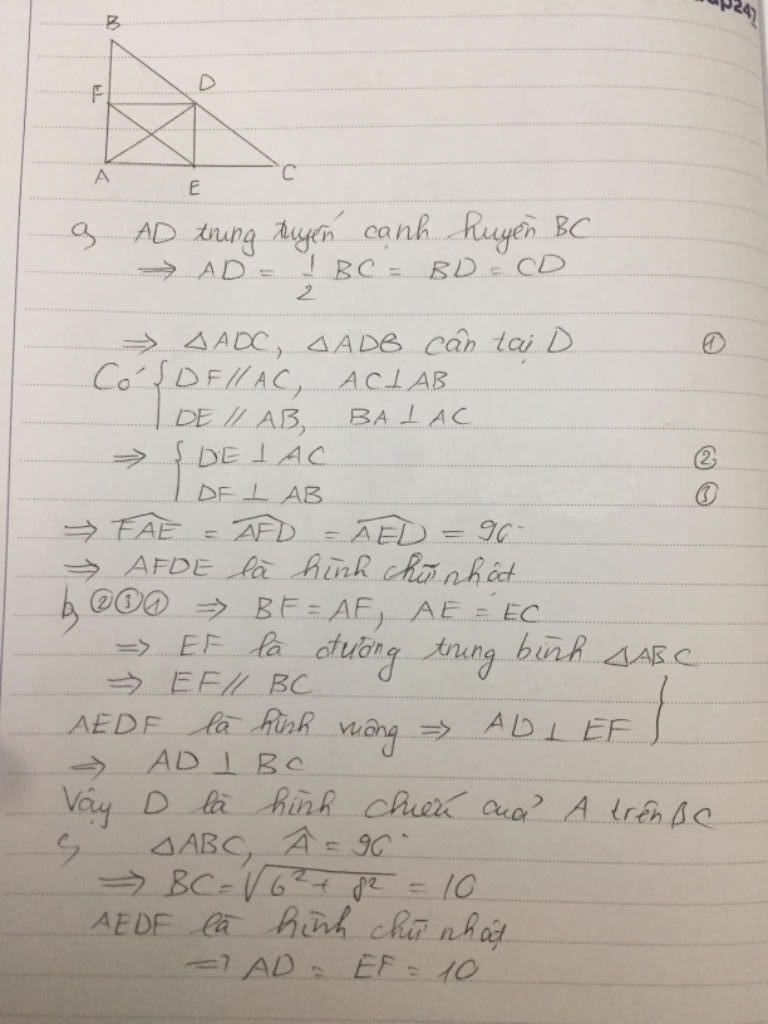 ap247
B
F
D
A
E
C
a, AD trung tuyến cạnh huyền BC
⇒ AD = 1/2 BC = BD = CD
⇒ △ADC, △ADB cân tại D ①
Có { DF // AC, AC ⊥ AB
DE // AB, BA ⊥ AC
⇒ { DE ⊥ AC ②
DF ⊥ AB ③
⇒ F̂AE = ÂFD = ÂED = 90°
⇒ AFDE là hình chữ nhật
b, ②③① ⇒ BF = AF, AE = EC
⇒ EF là đường trung bình △ABC
⇒ EF // BC }
AEDF là hình vuông ⇒ AD ⊥ EF
⇒ AD ⊥ BC
Vậy D là hình chuếu của A trên BC
c, △ABC, Â = 90°
⇒ BC = √(6² + 8²) = 10
AEDF là hình chữ nhật
⇒ AD = EF = 10